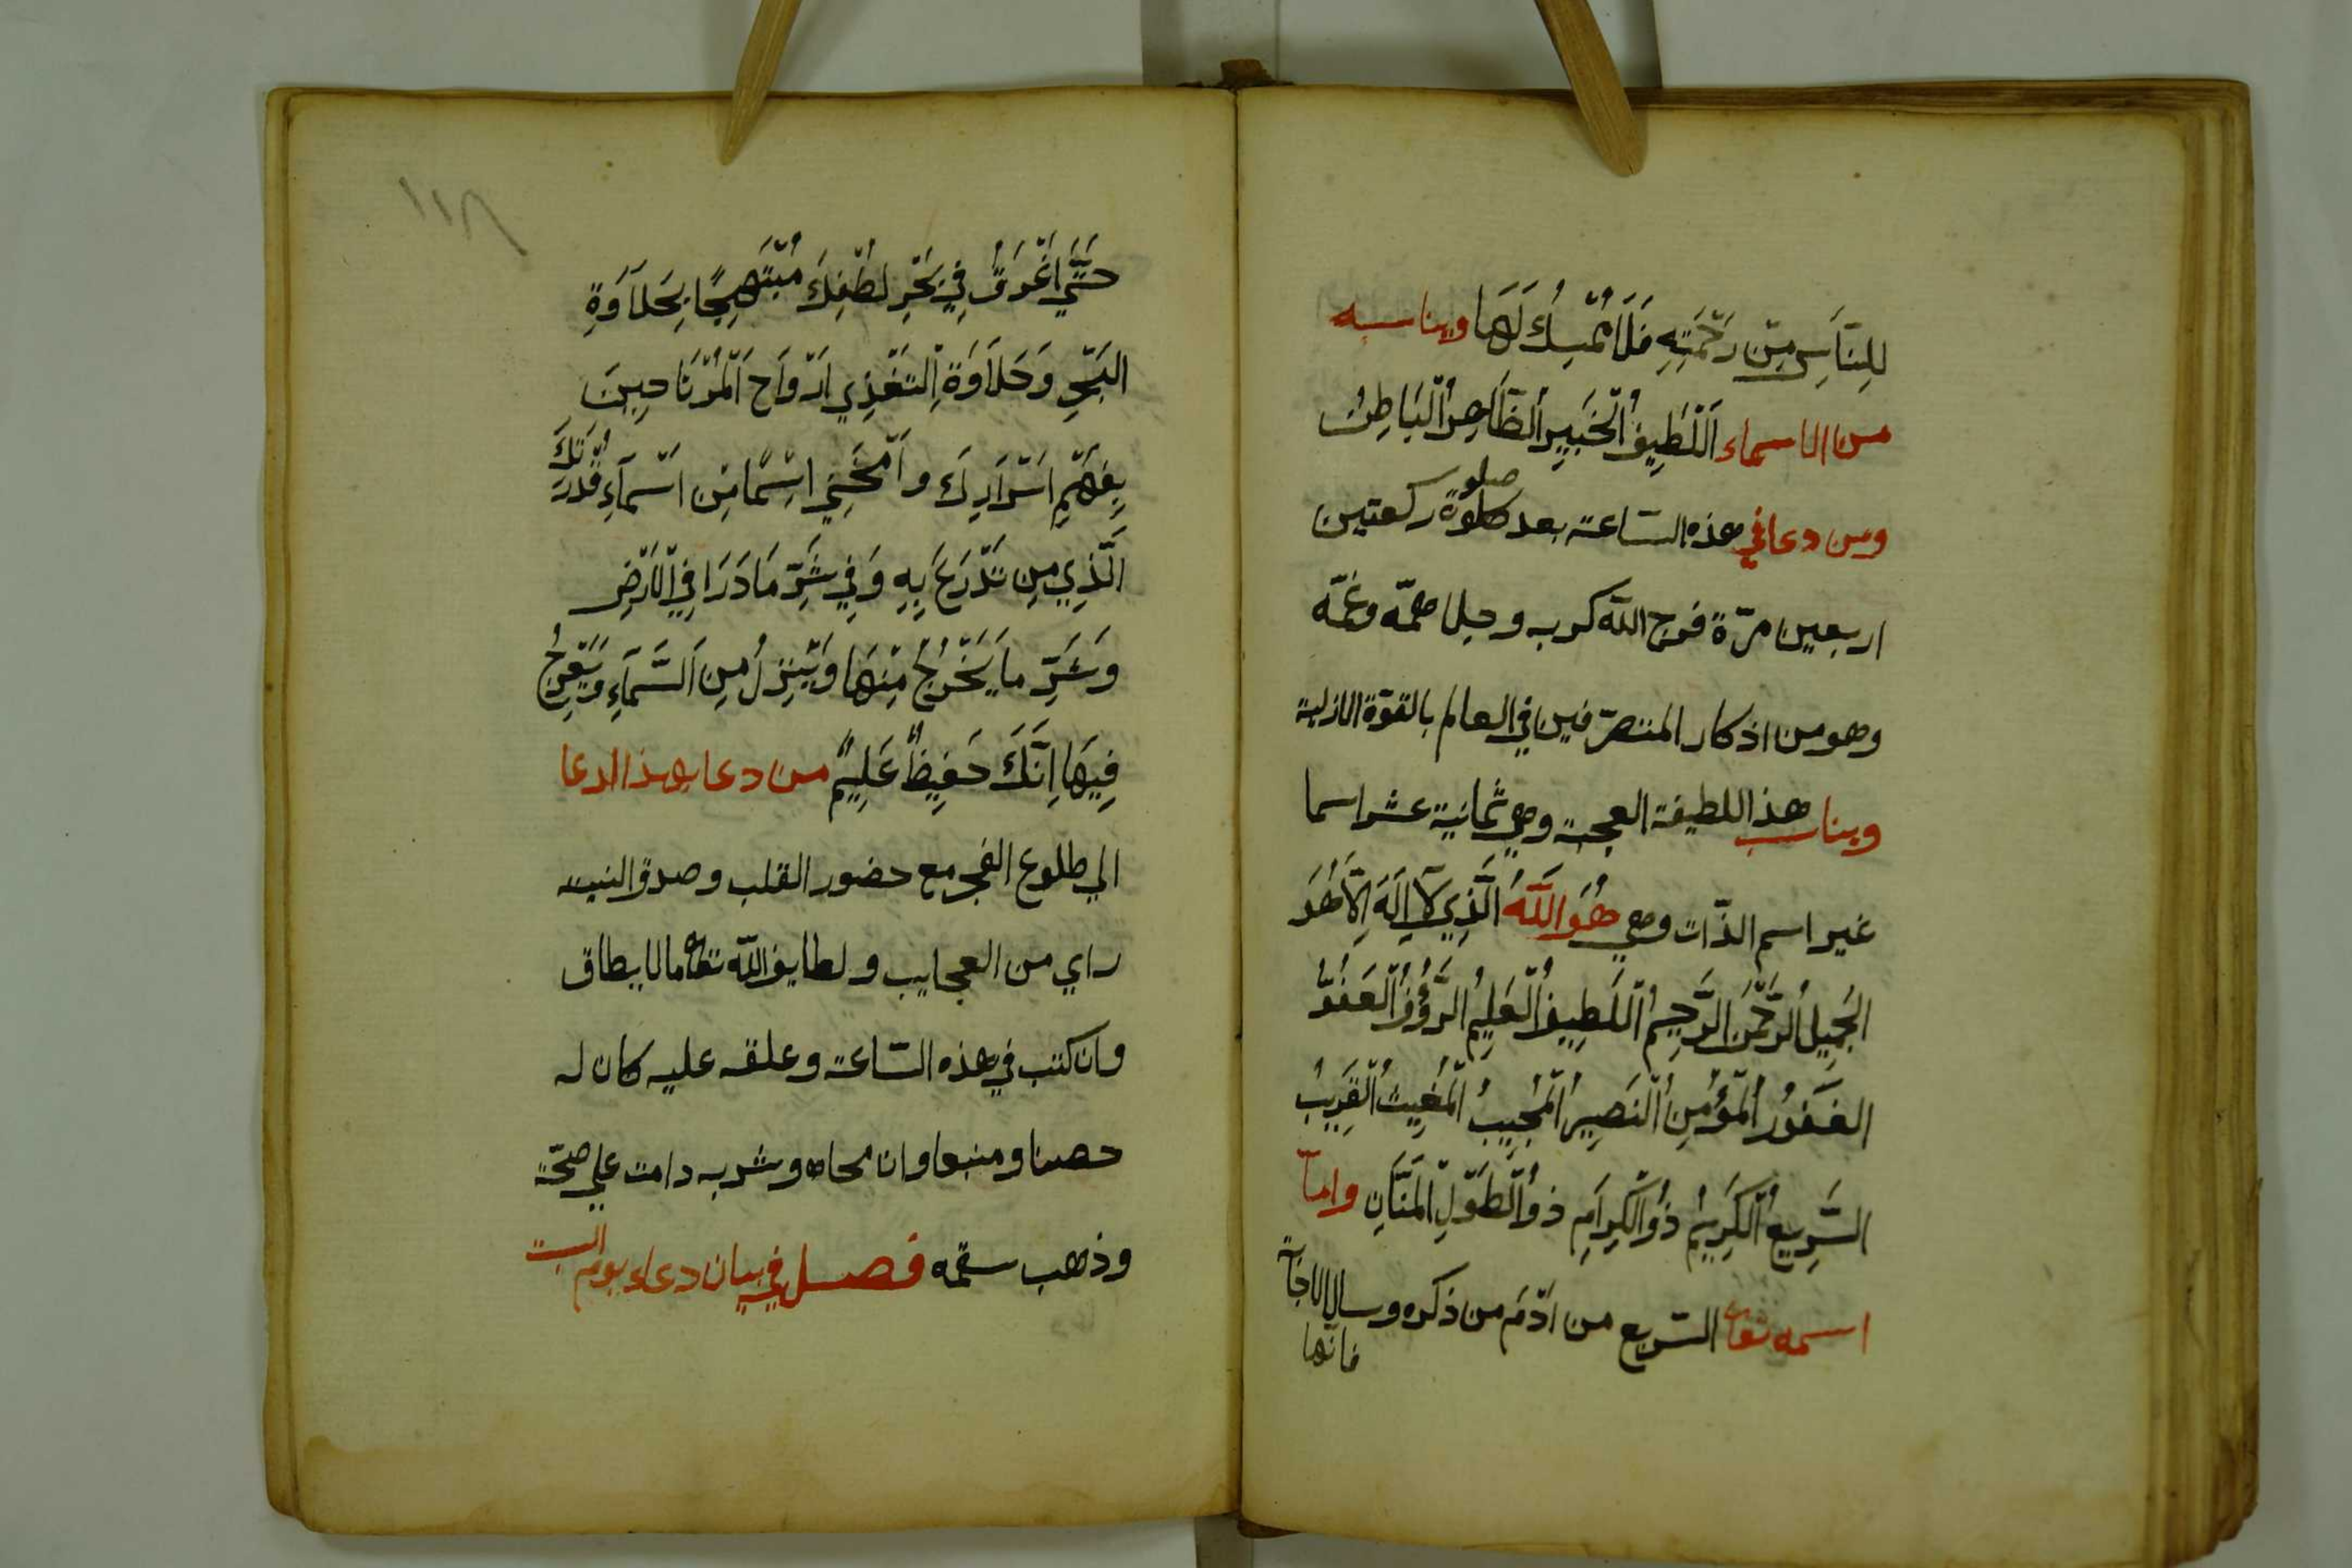 لِلنَّاسِ مِنْ رَحْمَتِهِ فَلَا مُمْسِكَ لَهَا ويناسبه
من الاسماء اَللَّطِيفُ الْخَبِيرُ الظَّاهِرُ الْبَاطِنُ
ومن دعا في هذه السّاعة بعد صلوة ركعتين
صلو
اربعين مرّة فرج اللّه كربه وحلا همّه وغمّه
وهو من اذكار المتصرّفين في العالم بالقوّة الازلية
ويناسب هذا اللطيفة العجبة وهي ثمانية عشر اسما
غير اسم الذّات وهي هُوَ اللَّهُ الَّذِي لَآ اِلَهَ اِلَّا هُوَ
الْجَمِيلُ الرَّحْمَنُ الرَّحِيمُ اللَّطِيفُ الْعَلِيمُ الرَّؤُفُ الْعَفُوُّ
الغَفُورُ الْمُؤْمِنُ النَّصِيرُ الْمُجِيبُ الْمُغِيثُ الْقَرِيبُ
السَّرِيعُ الْكَرِيمُ ذُو الْكِرَامِ ذُو الطَّوْلِ الْمَنَّانِ وامّا
اسمه تعالى السّريع من ادْمَ من ذكره وسال الاجابة
فانّها
١١٨
حَتَّي اَغْرَقُ فِي بَحْرِ لُطْفِكَ مُبْتَهِجًا بِحَلَاوَةِ
البَحْرِ وَحَلَاوَةِ التَّغْذِي اَرْوَاحِ الْمُرْتَاحِينَ
بِفَهْمِ اَسْرَارِكَ وامْنَحْنِي اسْمًا مِنْ اَسْمَآءِ قُدْرَتِكَ
الَّذِي مِن تَدَرَّعَ بِهِ وَفِي شَرِّ مَا دَرَا فِي الْاَرْضِ
وَشَرِّ ما يَخْرُجُ مِنْهَا وَيَنْزِلُ مِنَ السَّمَآءِ وَيَعْرِجُ
فِيهَا اِنَّكَ حَفِيظٌ عَلِيمٌ من دعا بهذا الدعا
الي طلوع الفجر مع حضور القلب وصدق النيه
راي من العجايب ولطايف اللّه تعالى ما لا يطاق
وان كتب في هذه السّاعة وعلقه عليه كان له
حصنا ومنيعا وان محاه وشربه دامت علي صحّة
وذهب سقمه فصل في بيان دعاء يوم السبت